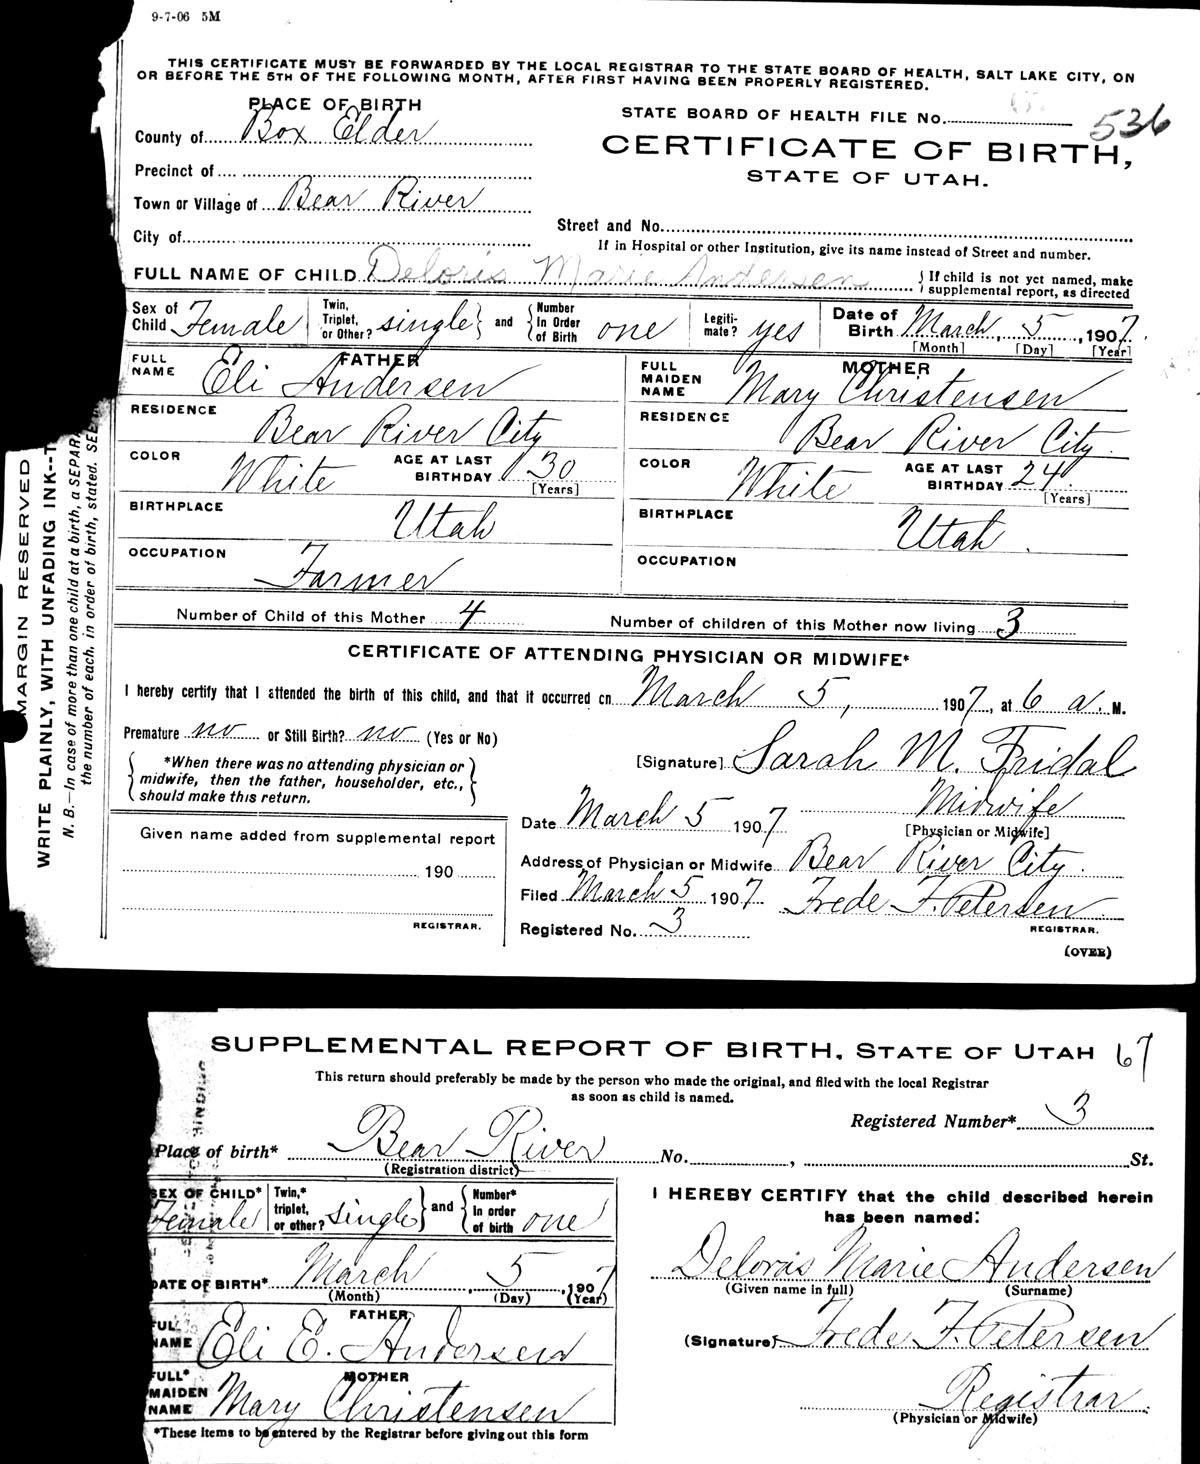 9-7-06 5M
THIS CERTIFICATE MUST BE FORWARDED BY THE LOCAL REGISTRAR TO THE STATE BOARD OF HEALTH, SALT LAKE CITY, ON
OR BEFORE THE 5TH OF THE FOLLOWING MONTH, AFTER FIRST HAVING BEEN PROPERLY REGISTERED.
PLACE OF BIRTH
County of Box Elder
Precinct of
Town or Village of Bear River
City of
STATE BOARD OF HEALTH FILE No. 536
CERTIFICATE OF BIRTH,
STATE OF UTAH.
Street and No.
If in Hospital or other Institution, give its name instead of Street and number.
FULL NAME OF CHILD Deloris Marie Andersen { If child is not yet named, make
supplemental report, as directed
Sex of Child Female Twin, Triplet, or Other? single } and { Number In Order of Birth one Legiti-mate? yes Date of Birth March, 5, 1907
[Month] [Day] [Year]
FATHER
FULL NAME Eli Andersen
RESIDENCE
Bear River City
COLOR White AGE AT LAST BIRTHDAY 30
[Years]
BIRTHPLACE Utah
OCCUPATION Farmer
MOTHER
FULL MAIDEN NAME Mary Christensen
RESIDENCE
Bear River City.
COLOR White AGE AT LAST BIRTHDAY 24
[Years]
BIRTHPLACE Utah.
OCCUPATION
Number of Child of this Mother 4 Number of children of this Mother now living 3
CERTIFICATE OF ATTENDING PHYSICIAN OR MIDWIFE*
I hereby certify that I attended the birth of this child, and that it occurred on March 5, 1907, at 6 a. M.
Premature no or Still Birth? no (Yes or No)
{ *When there was no attending physician or
midwife, then the father, householder, etc.,
should make this return. }
[Signature] Sarah M. Fridal
Midwife
[Physician or Midwife]
Date March 5 1907
Address of Physician or Midwife Bear River City.
Filed March 5 1907 Frede F. Petersen
REGISTRAR.
Registered No. 3
(OVER)
Given name added from supplemental report
190
REGISTRAR.
MARGIN RESERVED
WRITE PLAINLY, WITH UNFADING INK--T
N. B.—In case of more than one child at a birth, a SEPAR
the number of each, in order of birth, stated. SEE
SUPPLEMENTAL REPORT OF BIRTH, STATE OF UTAH 67
This return should preferably be made by the person who made the original, and filed with the local Registrar
as soon as child is named.
Registered Number* 3
Place of birth* Bear River No. , St.
(Registration district)
SEX OF CHILD* Female Twin,* triplet, or other? single } and { Number* In order of birth one
DATE OF BIRTH* March, 5, 1907
(Month) (Day) (Year)
FATHER
FULL NAME Eli E. Andersen
MOTHER
FULL* MAIDEN NAME Mary Christensen
*These items to be entered by the Registrar before giving out this form
I HEREBY CERTIFY that the child described herein
has been named:
Deloris Marie Andersen
(Given name in full) (Surname)
(Signature) Frede F. Petersen
Registrar.
(Physician or Midwife)
BINDING